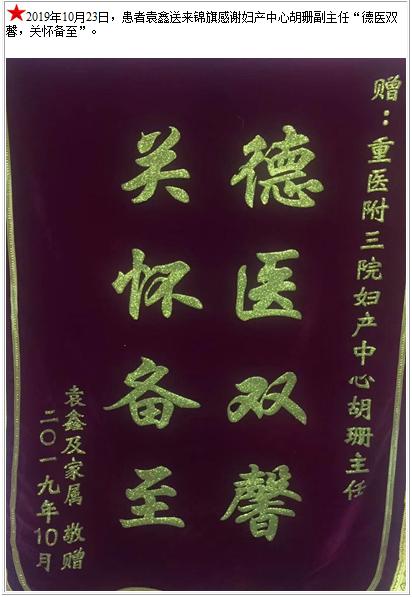 ★2019年10月23日，患者袁鑫送来锦旗感谢妇产中心胡珊副主任“德医双
馨，关怀备至”。
赠：重医附三院妇产中心胡珊主任
德医双馨
关怀备至
袁鑫及家属 敬赠
二〇一九年10月